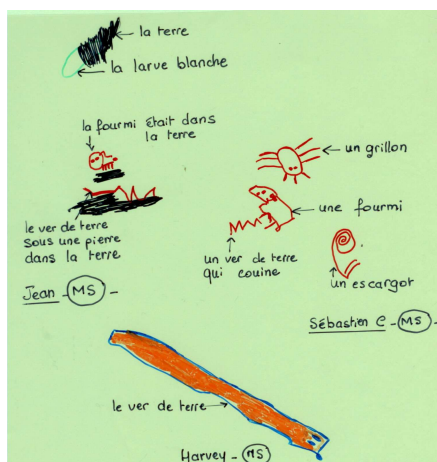 la terre
la larve blanche
la fourmi était dans
la terre
le ver de terre
sous une pierre
dans la terre
Jean - MS -
un grillon
une fourmi
un ver de terre
qui couine
un escargot
Sébastien C - MS -
le ver de terre
Harvey - MS